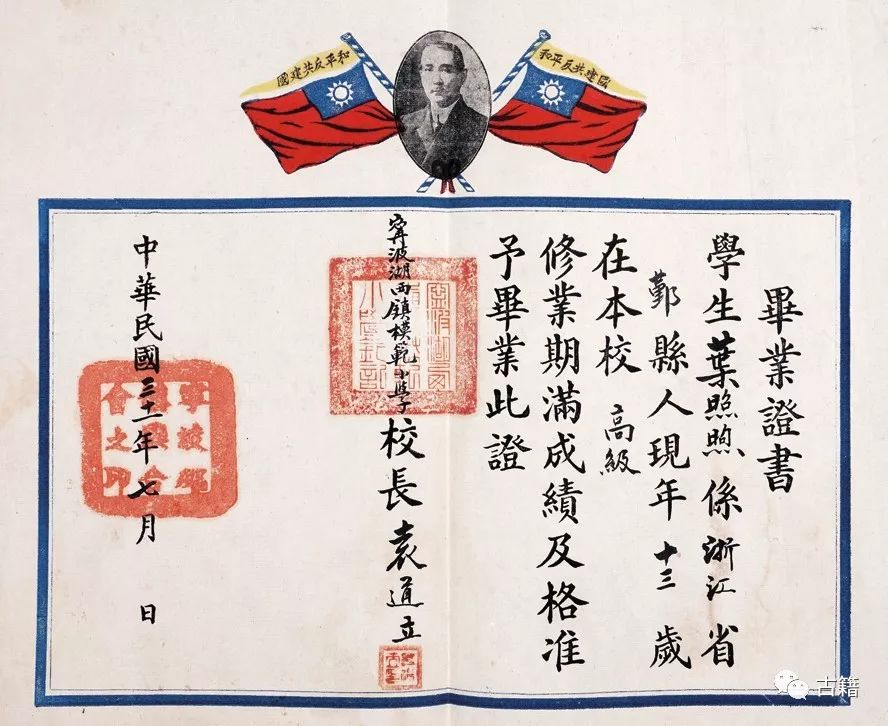 和平反共建國
和平反共建國
畢業證書
學生葉照係浙江省
鄞縣人現年十三歲
在本校高級
修業期滿成績及格准
予畢業此證
寧波湖西鎮模範小學校長袁道立
中華民國三十一年七月 日
古籍